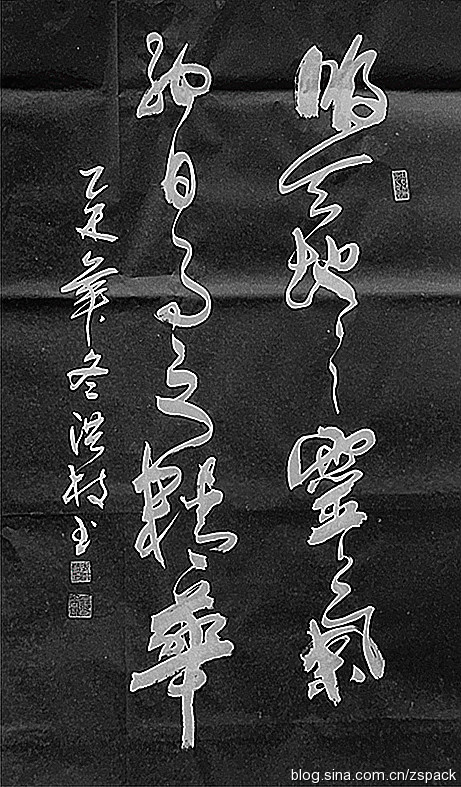 天地之靈氣
納日月之精華
乙未年冬洪书
blog.sina.com.cn/zspack